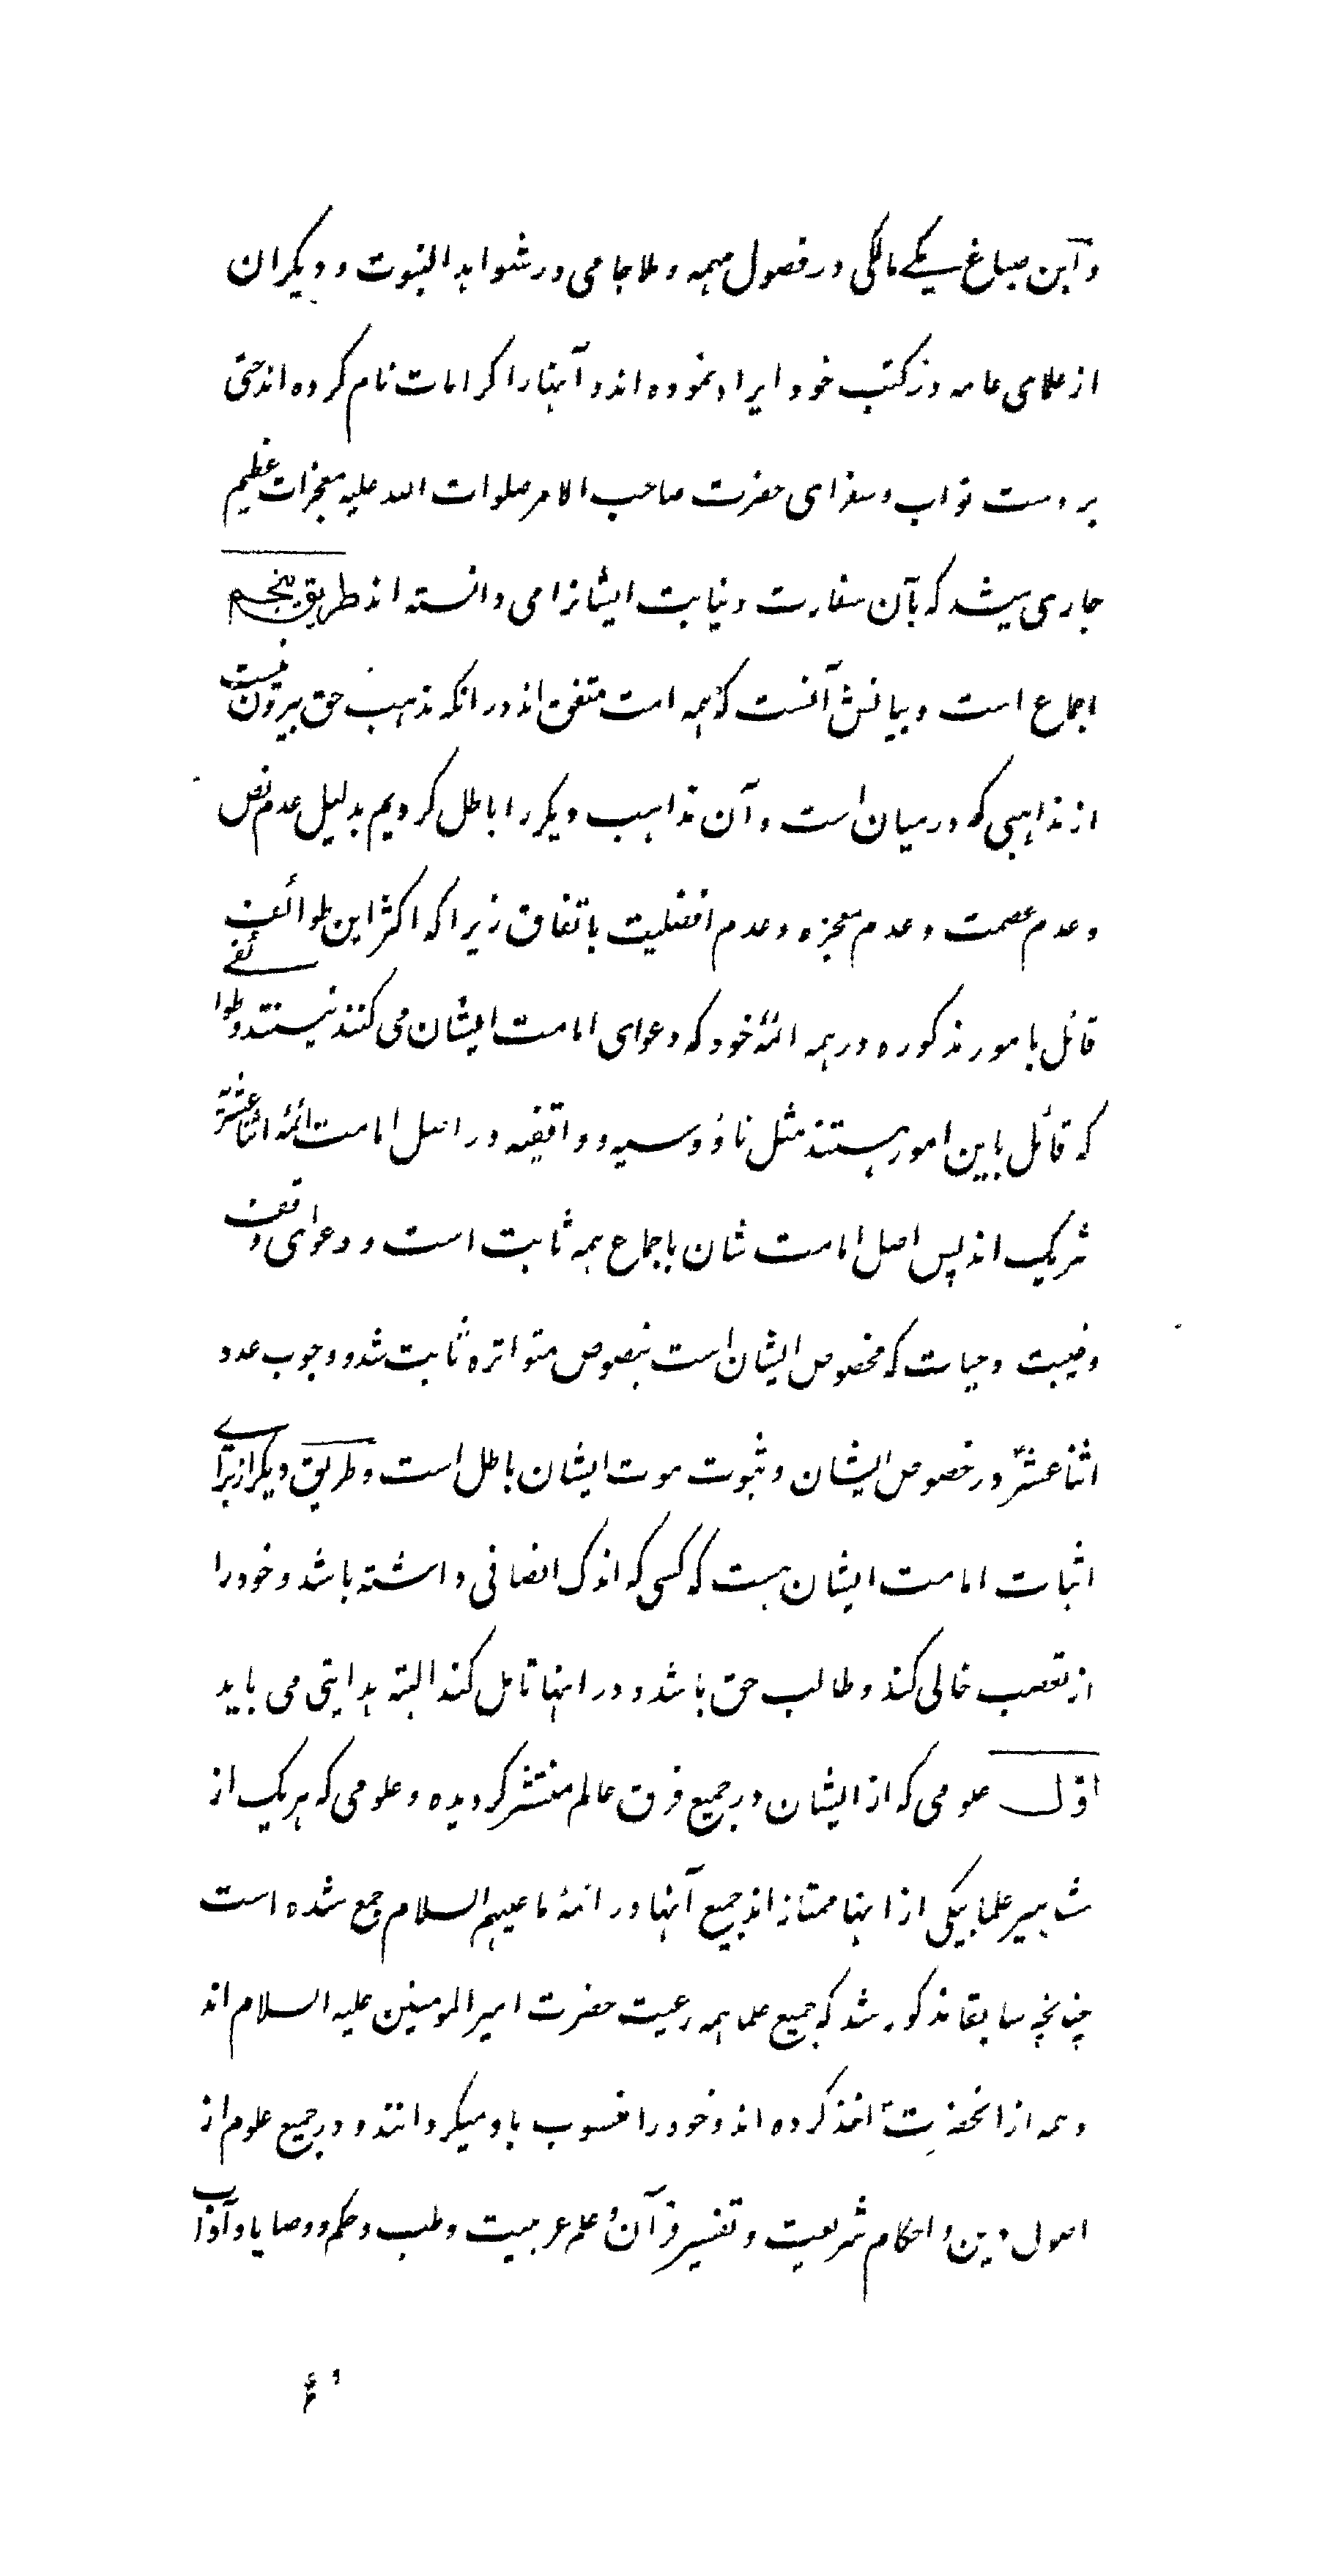 و ابن صباغ یکے مالکی در فصول مهمه و ملا جامی در شواهد النبوت و دیکران
از علمای عامه در کتب خود ایراد نموده اند و آنها را کرامات نام کرده اند حتی
بر دست نواب و سفرای حضرت صاحب الامر صلوات الله علیه معجزات عظیم
جاری میشد که بآن سفارت و نیابت ایشانرا می دانسته اند طریق پنجم
اجماع است و بیانش آنست که همه امت متفق اند در انکه مذهب حق بیرون نیست
از مذاهبی که در میان است و آن مذاهب دیکر را باطل کردیم بدلیل عدم نص
و عدم عصمت و عدم معجزه و عدم افضلیت باتفاق زیرا که اکثر این طوائف
قائل بامور مذکوره در همه ائمۀ خود که دعوای امامت ایشان می کنند نیستند و طوائفے
که قائل باین امور هستند مثل ناووسیه و واقفیه در اصل امامت ائمۀ اثنا عشر
شریک اند پس اصل امامت شان باجماع همه ثابت است و دعوای وقف
و غیبت و حیات که مخصوص ایشان است بنصوص متواتره ثابت شد و وجوب عدد
اثنا عشر در خصوص ایشان و ثبوت موت ایشان باطل است و طریق دیکر از براے
اثبات امامت ایشان هست که کسی که اندک انصافی داشته باشد و خود را
از تعصب خالی کند و طالب حق باشد و در اینها تامل کند البته هدایتی می یابد
اوّل علومی که از ایشان در جمیع فرق عالم منتشر کردیده و علومی که هریک از
مشاهیر علما بیکی از اینها ممتاز اند جمیع آنها در ائمۀ ما علیهم السلام جمع شده است
چنانچه سابقا مذکور شد که جمیع علما همه رعیت حضرت امیر المومنین علیه السلام اند
و همه از انحضرت اخذ کرده اند و خود را منسوب باو میکردانند و در جمیع علوم از
اصول دین و احکام شریعت و تفسیر قرآن و علم عربیت و طب و حکم و وصایا و آداب